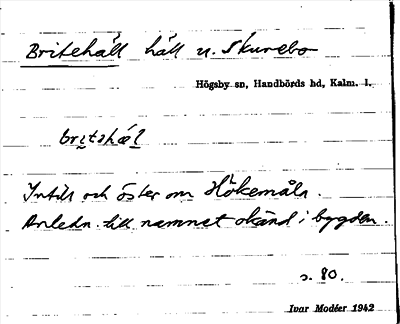 Britehäll häll u. Skurebo
Högsby sn, Handbörds hd, Kalm. l.
britahæl
Intill och öster om Hökemåla.
Anledn. till namnet okänd i bygden.
s. 80.
Ivar Modéer 1942